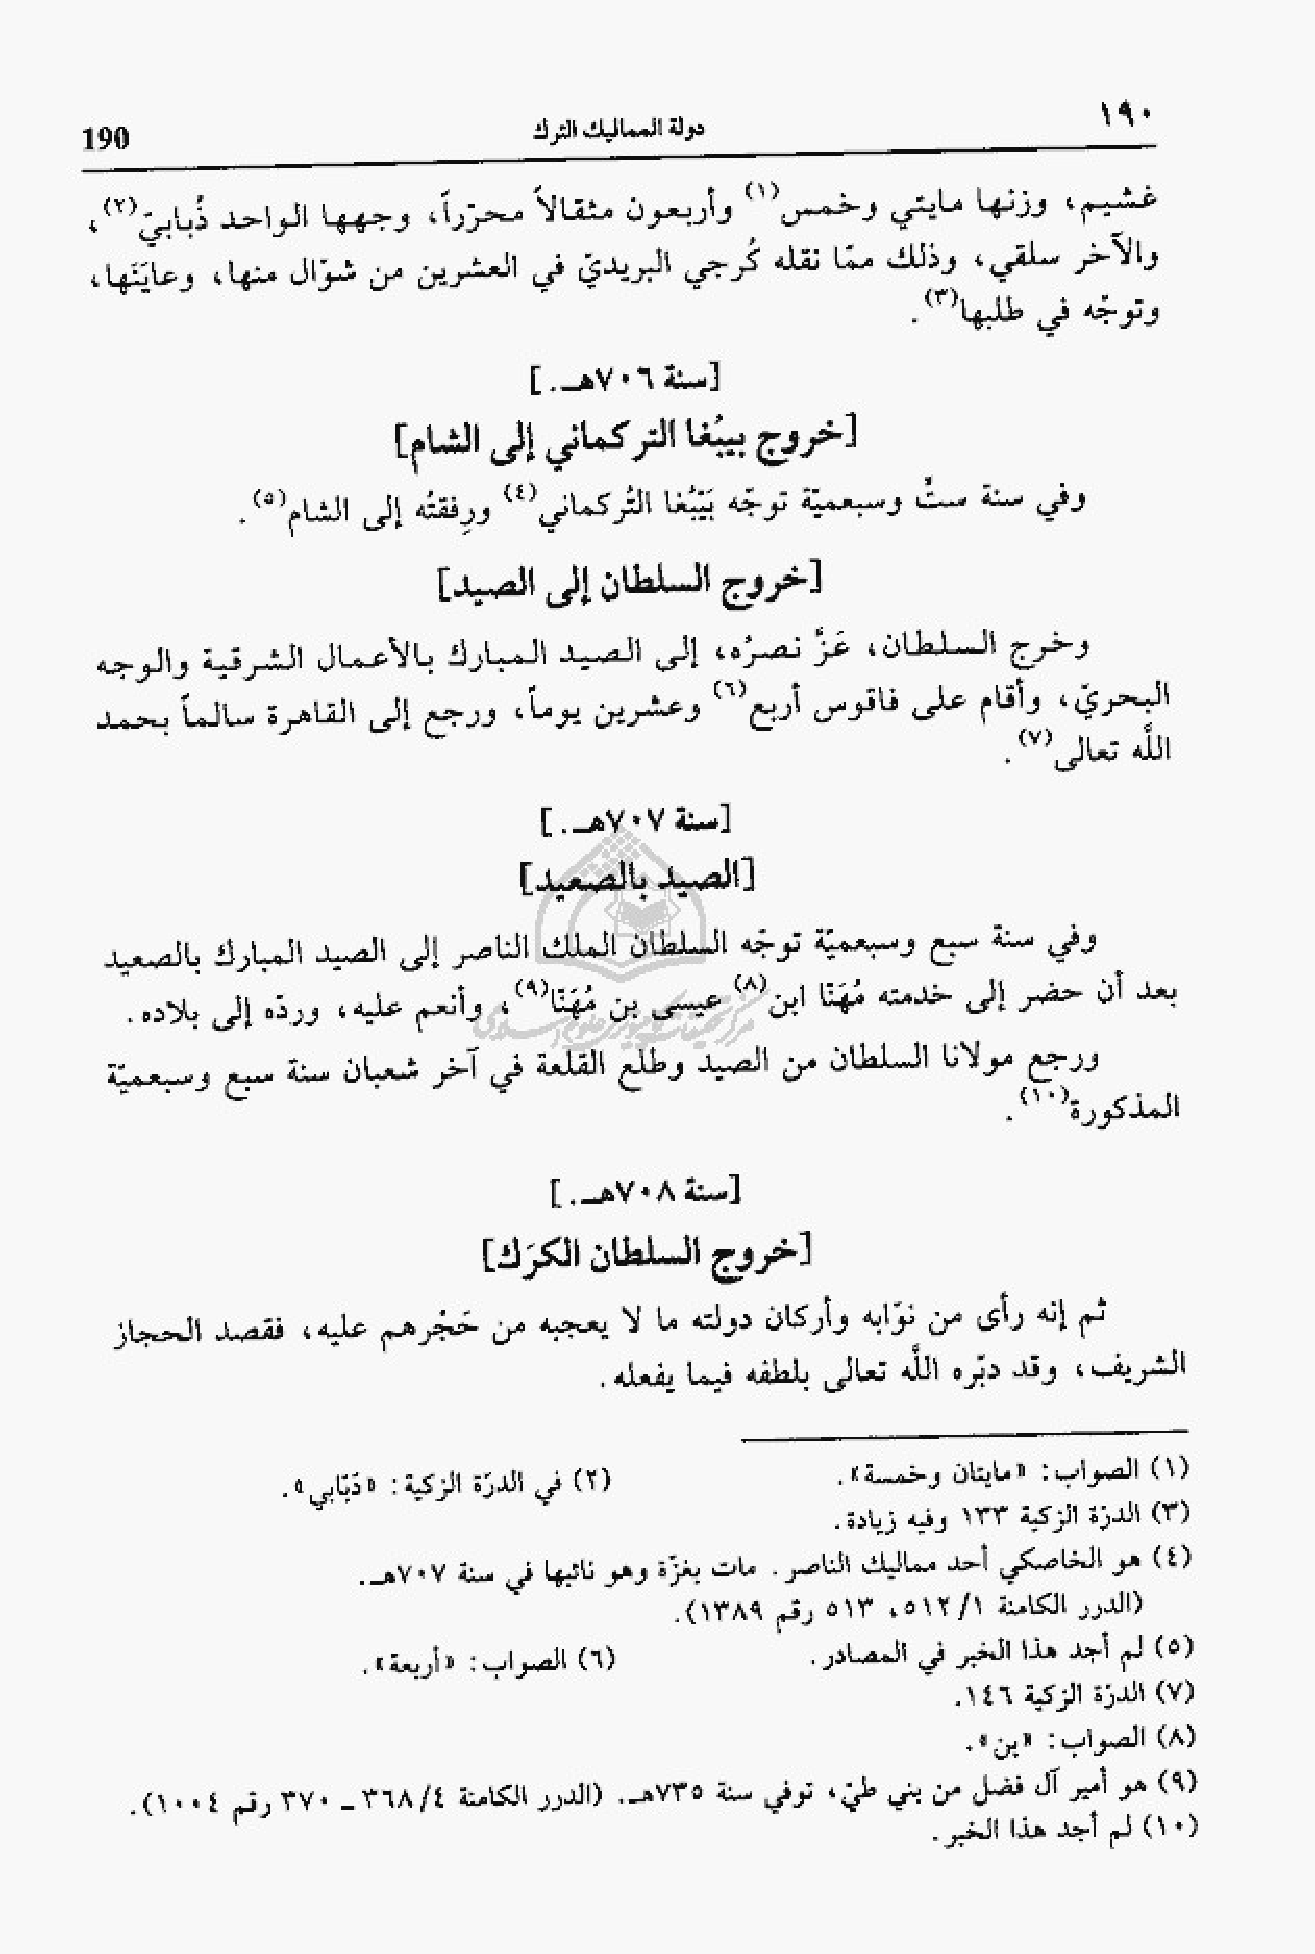 ١٩٠
دولة المماليك الترك
190
غشيم، وزنها مايتي وخمس(١) وأربعون مثقالاً محرّراً، وجهها الواحد ذُبابيّ(٢)،
والآخر سلقي، وذلك ممّا نقله كُرجي البريديّ في العشرين من شوّال منها، وعايَنَها،
وتوجّه في طلبها(٣).
[سنة ٧٠٦هـ.]
[خروج بيبُغا التركماني إلى الشام]
وفي سنة ستٌ وسبعميّة توجّه بَيْبُغا التُركماني(٤) ورِفقتُه إلى الشام(٥).
[خروج السلطان إلى الصيد]
وخرج السلطان، عَزَّ نصرُه، إلى الصيد المبارك بالأعمال الشرقية والوجه
البحريّ، وأقام على فاقوس أربع(٦) وعشرين يوماً، ورجع إلى القاهرة سالماً بحمد
اللَّه تعالى(٧).
[سنة ٧٠٧هـ.]
[الصيد بالصعيد]
وفي سنة سبع وسبعميّة توجّه السلطان الملك الناصر إلى الصيد المبارك بالصعيد
بعد أن حضر إلى خدمته مُهَنّا ابن(٨) عيسى بن مُهَنّا(٩)، وأنعم عليه، وردّه إلى بلاده.
ورجع مولانا السلطان من الصيد وطلع القلعة في آخر شعبان سنة سبع وسبعميّة
المذكورة(١٠).
[سنة ٧٠٨هـ.]
[خروج السلطان الكرَك]
ثم إنه رأى من نوّابه وأركان دولته ما لا يعجبه من حَجْرهم عليه، فقصد الحجاز
الشريف، وقد دبّره اللَّه تعالى بلطفه فيما يفعله.
(١) الصواب: «مايتان وخمسة».
(٢) في الدرّة الزكية: «ذَبّابي».
(٣) الدرّة الزكية ١٣٣ وفيه زيادة.
(٤) هو الخاصكي أحد مماليك الناصر. مات بغزّة وهو نائبها في سنة ٧٠٧هـ.
(الدرر الكامنة ١/ ٥١٢، ٥١٣ رقم ١٣٨٩).
(٥) لم أجد هذا الخبر في المصادر.
(٦) الصواب: «أربعة».
(٧) الدرّة الزكية ١٤٦.
(٨) الصواب: «بن».
(٩) هو أمير آل فضل من بني طيّ، توفي سنة ٧٣٥هـ. (الدرر الكامنة ٤/ ٣٦٨ ـ ٣٧٠ رقم ١٠٠٤).
(١٠) لم أجد هذا الخبر.